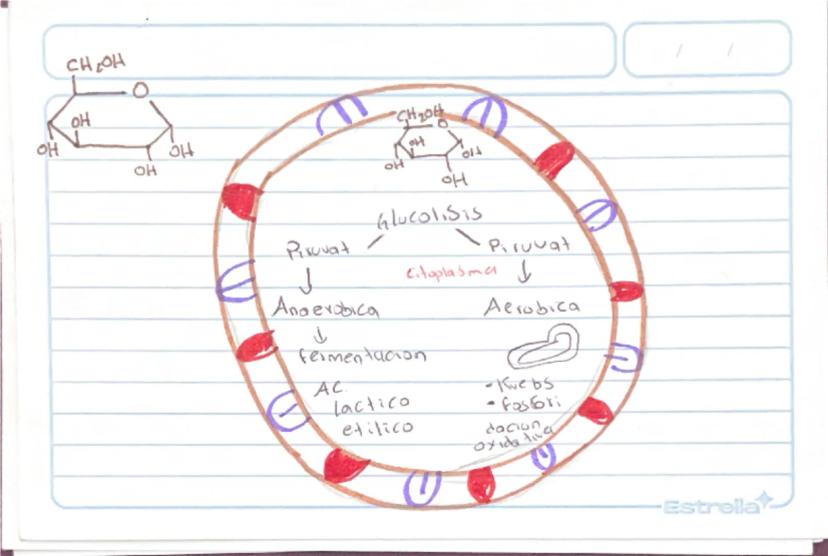 CH₂OH
O
OH
OH
OH
OH
CH₂OH
O
OH
OH
OH
OH
Glucolisis
Piruvat
Piruvat
citoplasma
Anaerobica
Aerobica
fermentacion
Ac.
lactico
etilico
- Krebs
• fosfori
dacion
oxidativa
Estrella